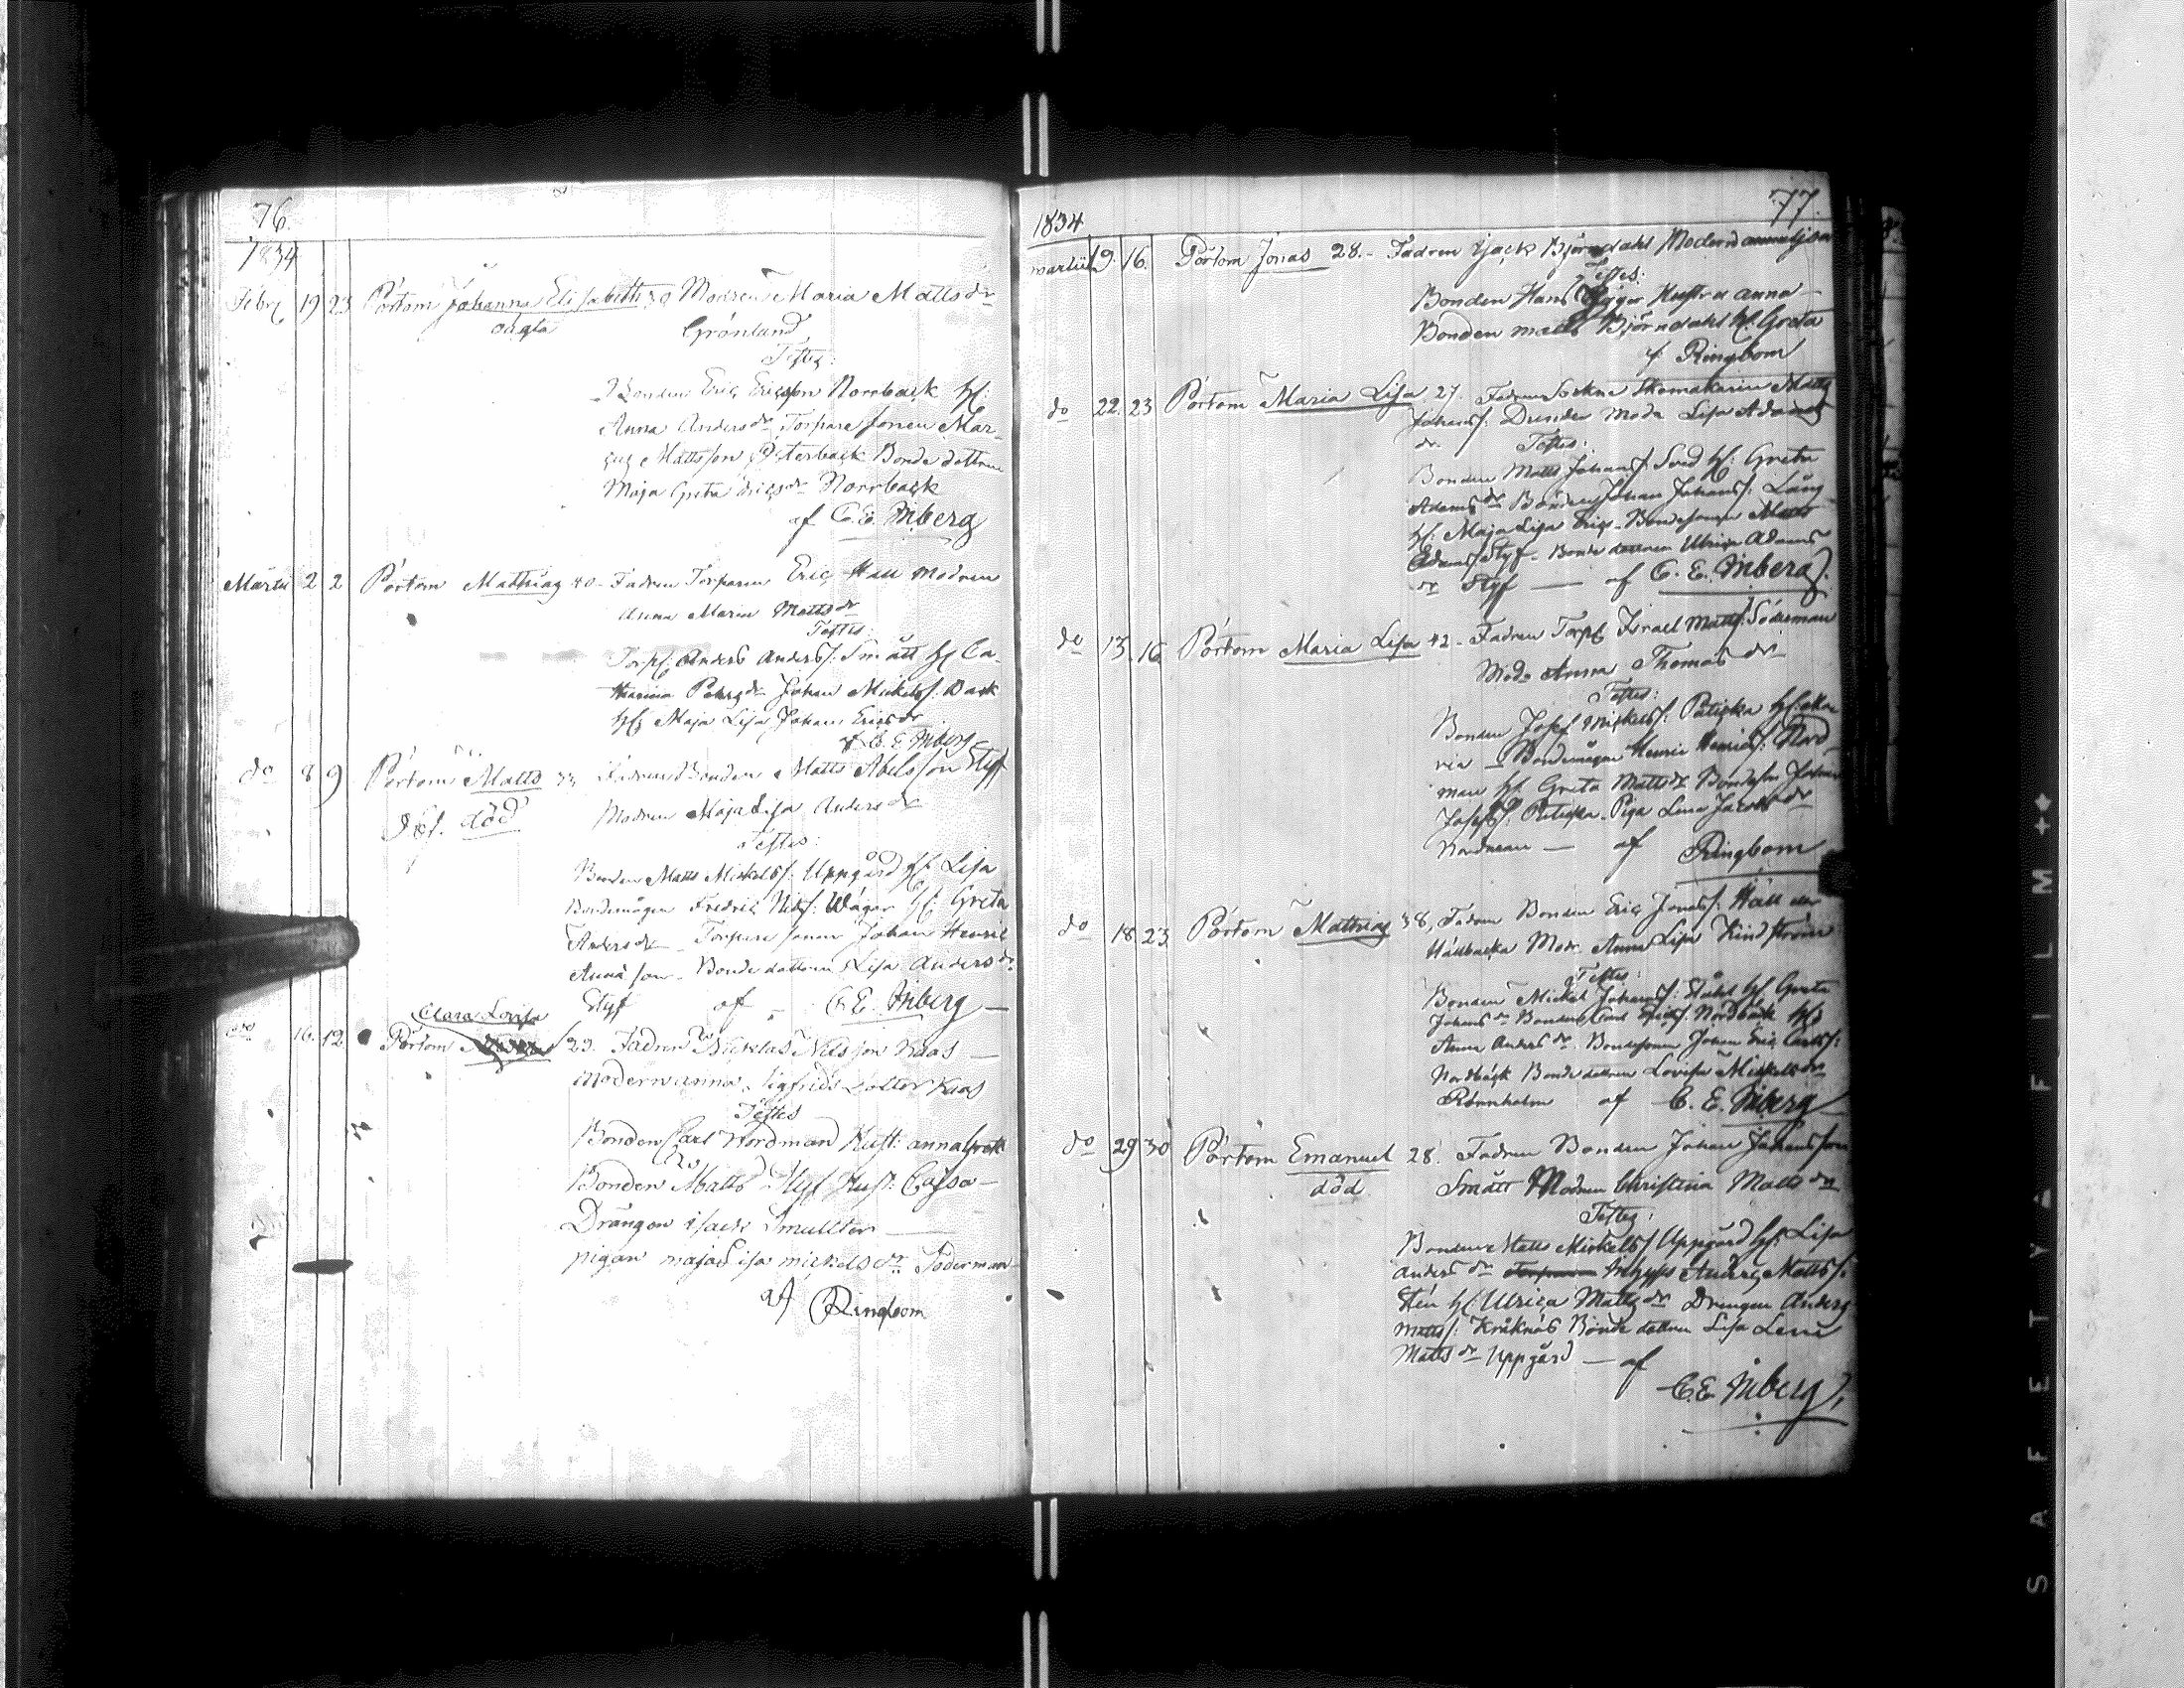 76.
1834
Febr 19 23 Pörtom Johanna Elisabeth Modren Maria Matts dr
oägta Grönland
Testes:
Bonden Eric Ericsson Norrback h:
Anna Anders dr Torpare sonen Mar-
cus Mattsson Österback Bonde dottren
Maja Greta Erics dr Norrback
af C. E. Inberg
Martii 2 2 Pörtom Mathias 40 - Fadren Torparen Eric Hall Modren
Anna Maria Matts dr
Testes:
Torp. Anders Anders: Smått h: Ca-
tharina Johan Mickels: Back
h: Maja Lisa Johan Erics dr
af C. E. Inberg
do 8 9 Pörtom Matts Fadren Bonden Matts Abelsson Styf
död Modren Maja Lisa Anders dr
Testes:
Bonden Matts Mickels: Uppgård h: Lisa
Bondemågen Fredric Nils: Wägar h: Greta
Anders dr Torpare sonen Johan Henric
Bonde dottren Lisa Anders dr
Styf af - C. E. Inberg
Clara Lovisa
do 16. 12 Pörtom 23. Fadren Nicklas Nilsson Kaas
Modern anna Sigfrids dotter Kaas
Testes
Bonden Carl Nordman Hust: anna Greta
Bonden Matts Styf Hust: Cajsa
Drängen isack Smulter
pigan maja Lisa mickels dr Söderman
af Ringbom
77.
1834
martii 9. 16. Pörtom Jonas 28. - Fadren isack Björndahl Modern anna
Testes:
Bonden Hans Hustru anna
Bonden matts Björndahl h: Greta
af Ringbom
do 22. 23 Pörtom Maria Lisa 27. Fadren Sockne Skomakaren Matts
Johans: Dunder Modr Lisa Adams
dr Testes:
Bonden Matts Johans: Sved h: Greta
Adams dr Bonden Johan Johans: Lång
h: Maja Lisa Erics - Bondesonen Matts
Adams: Styf - Bonde dottren Ulrica Adams
dr Styf af C. E. Inberg.
do 13. 16. Pörtom Maria Lisa 42 - Fadren Torp. Israel Matts: Söderman
Modr Anna Thomas dr
Testes:
Bonden Josef Mickels: h: Ma-
ria - Bondemågen Henric Henrics: Nord-
man h: Greta Matts dr Bondeson Johan
Josefs: Piga Lena Jacobs dr
Nordman af Ringbom
do 18 23. Pörtom Mathias 38, Fadren Bonden Eric Jonas: Häll eller
Hällbacka Modr. Anna Lisa Kindström
Testes:
Bonden Mickel Johans: Ståhl h: Greta
Johans dr Bonden Carl Erics: Nordbäck h:
Anna Anders dr. Bondesonen Johan Eric Carls:
Nordbäck Bonde dottren Lovisa Mickels dr
Rönnholm af C. E. Inberg
do 29 30 Pörtom Emanuel 28. Fadren Bonden Johan Johansson
död Smått Modren Christina Matts dr
Testes:
Bonden Matts Mickels: Uppgård h: Lisa
Anders dr Inhyses Anders Matts:
Sten h: Ulrica Matts dr Drengen Anders
Matts: Kråknäs Bonde dottren Lisa Lena
Matts dr Uppgård af
C. E. Inberg.
SAFETY FILM